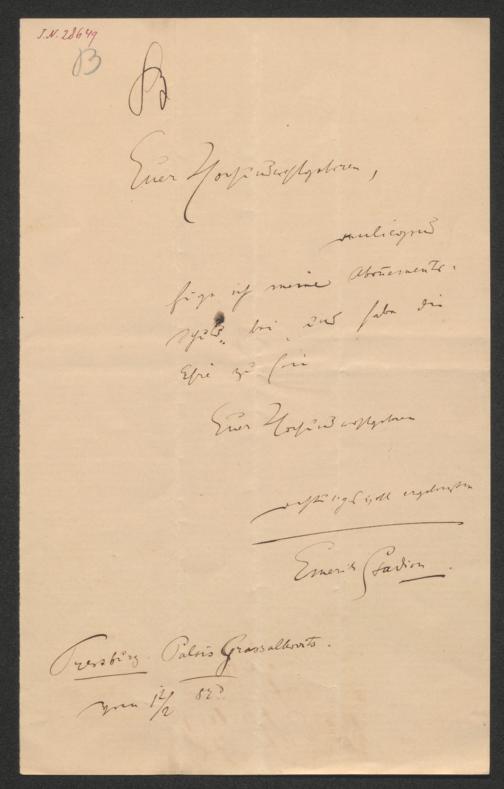 I.N. 28649
B
Euer Hochundwohlgeboren,
füge ich meine Abonements-
schuld bei, und habe die
Ehre zu sein
Euer Hochundwohlgeboren
achtungsvoll ergebenster
Emerich Stadion.
Pressburg. Palais Grassalkovits.
vom 12/2 82